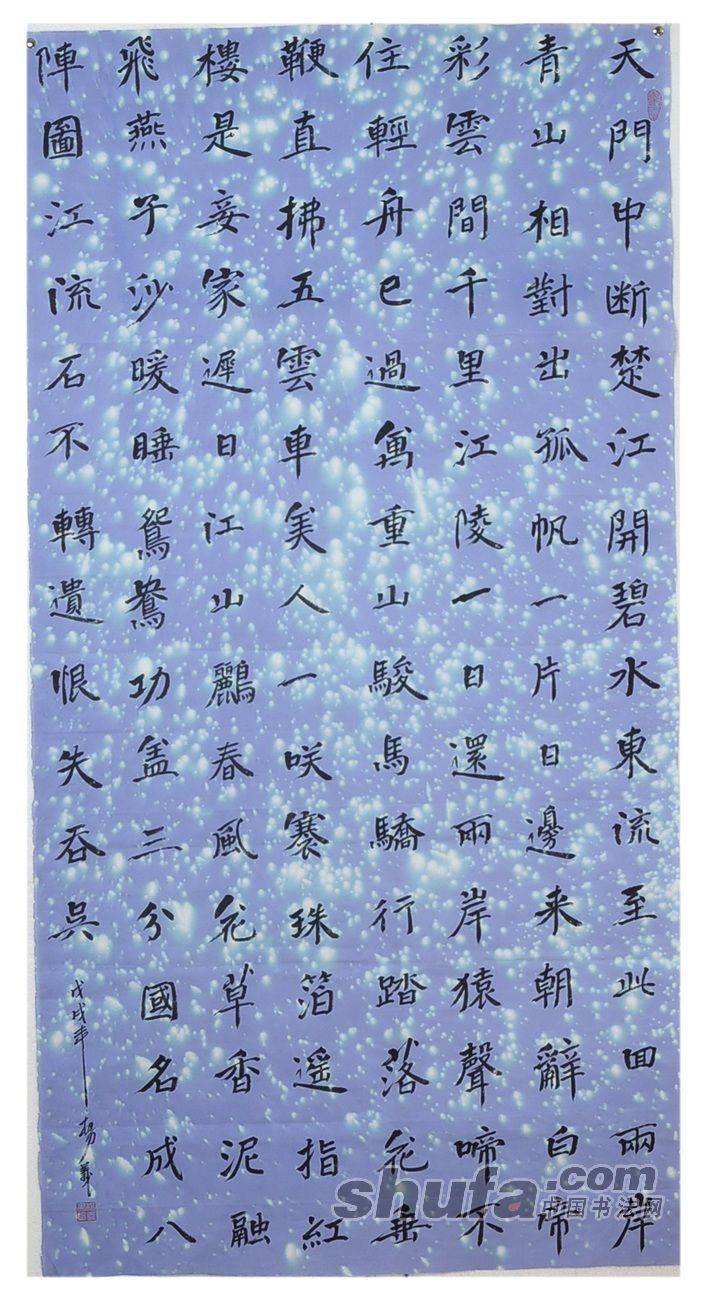 天門中断楚江開碧水東流至此回兩岸
青山相對出孤帆一片日邊来朝辭白帝
彩雲間千里江陵一日還兩岸猿聲啼不
住輕舟已過萬重山駿馬驕行踏落花垂
鞭直拂五雲車美人一咲褰珠箔遥指紅
樓是妾家遲日江山麗春風花草香泥融
飛燕子沙暖睡鴛鴦功盖三分國名成八
陣圖江流石不轉遺恨失吞吳
戊戌年 楊
shufa.com
中国书法网